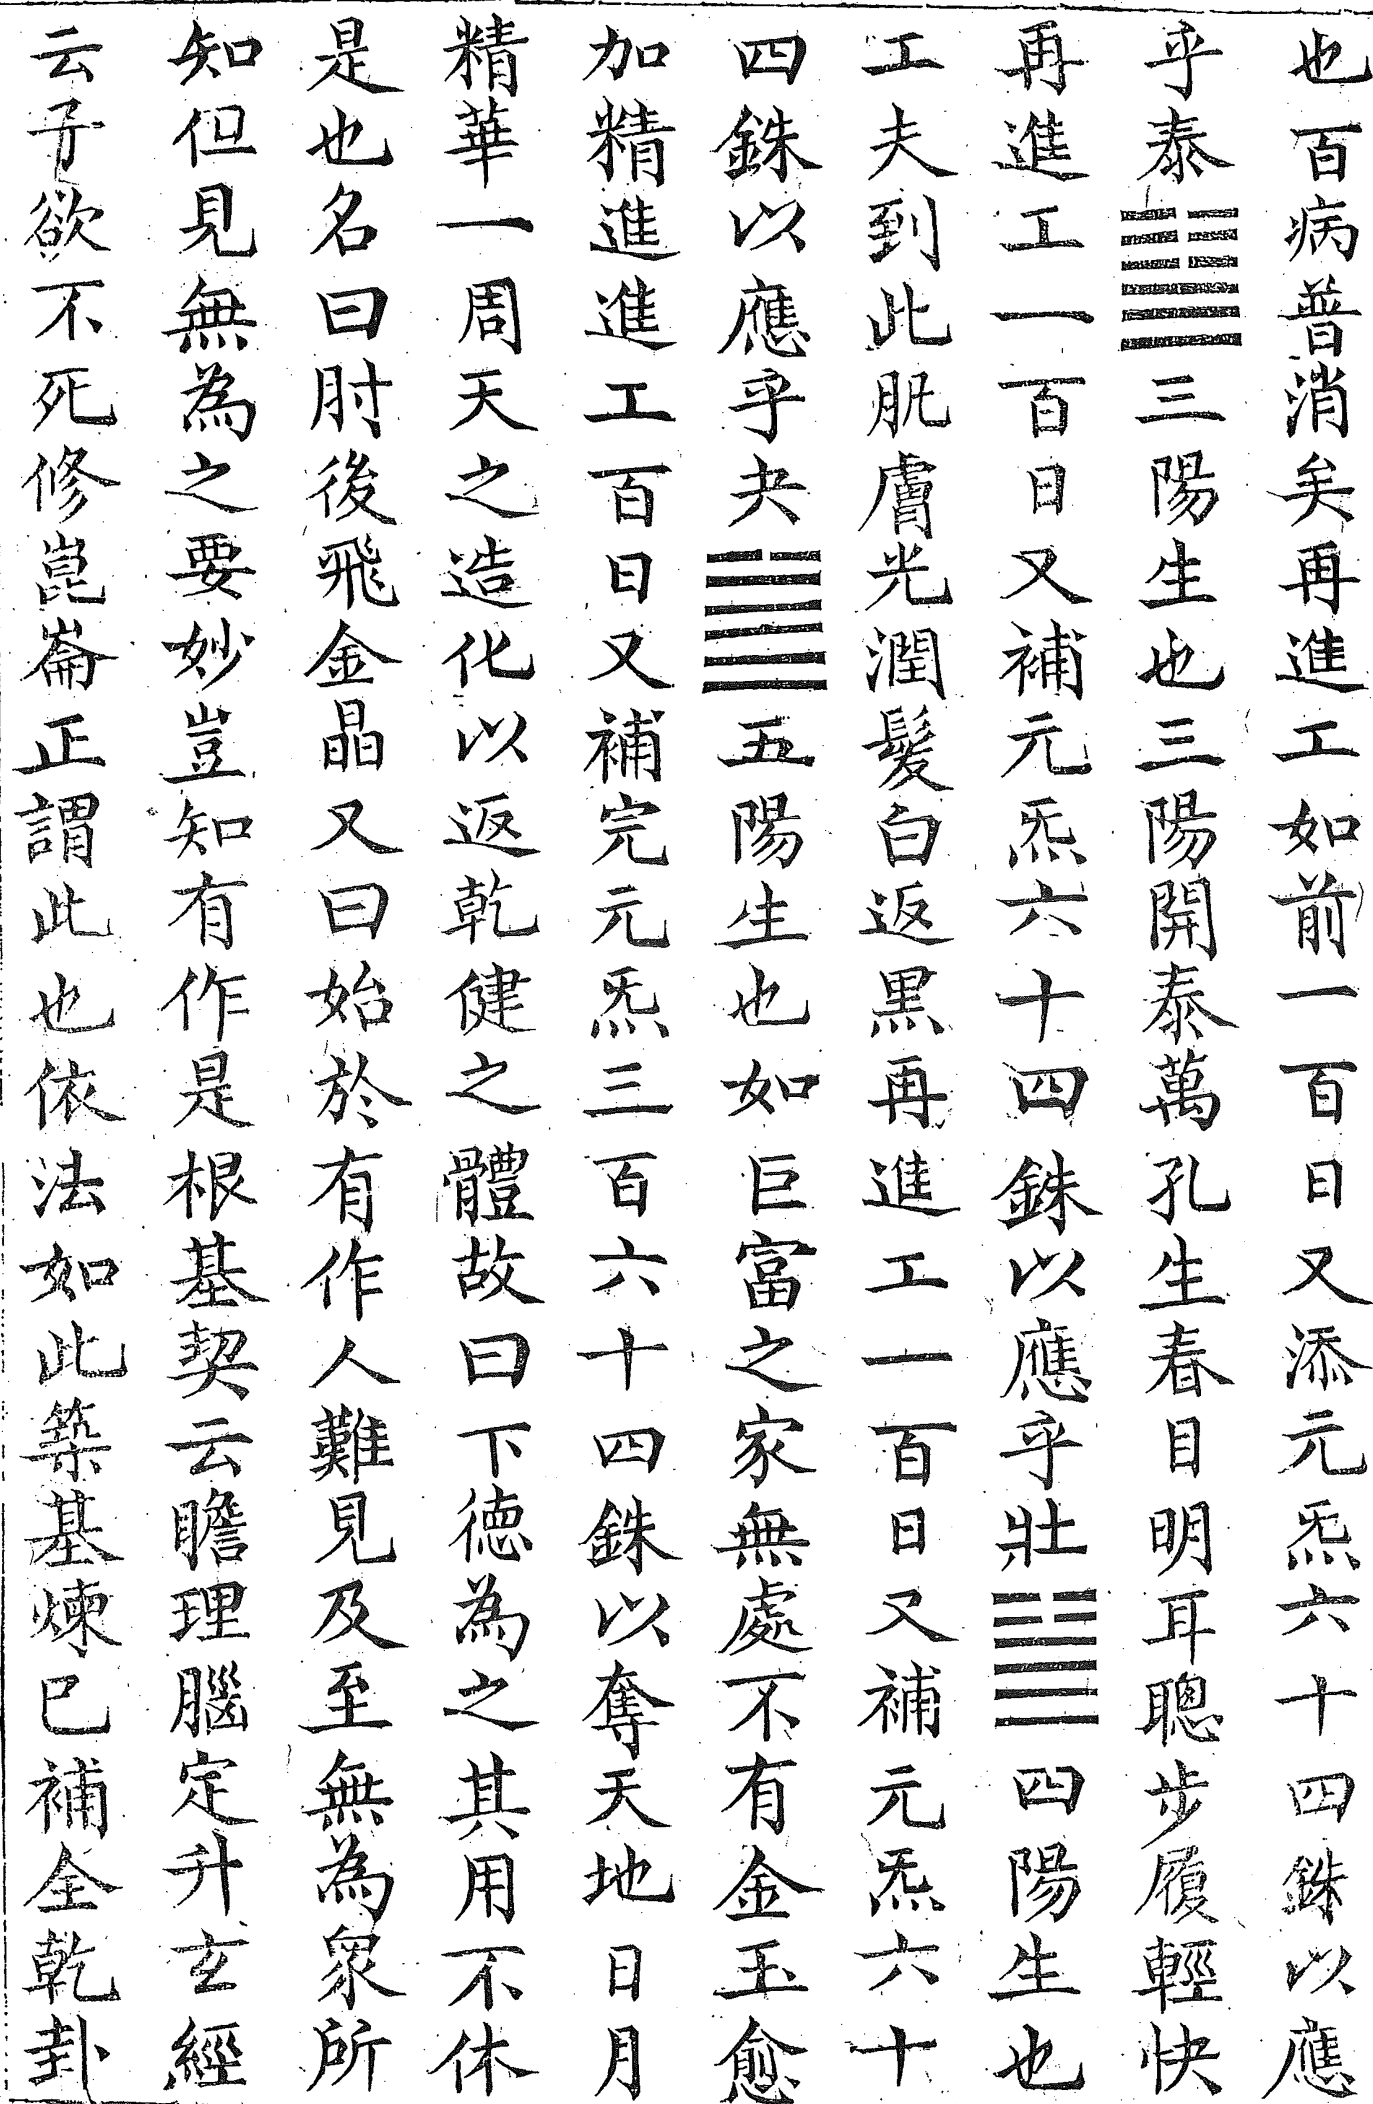 也百病普消矣再進工如前一百日又添元炁六十四銖以應
乎泰䷊三陽生也三陽開泰萬孔生春目明耳聰步履輕快
再進工一百日又補元炁六十四銖以應乎壯䷡四陽生也
工夫到此肌膚光潤髮白返黑再進工一百日又補元炁六十
四銖以應乎夬䷪五陽生也如巨富之家無處不有金玉愈
加精進進工百日又補完元炁三百六十四銖以奪天地日月
精華一周天之造化以返乾健之體故曰下德為之其用不休
是也名曰肘後飛金晶又曰始於有作人難見及至無為眾所
知但見無為之要妙豈知有作是根基契云瞻理腦定升玄經
云子欲不死修崑崙正謂此也依法如此築基煉已補全乾卦